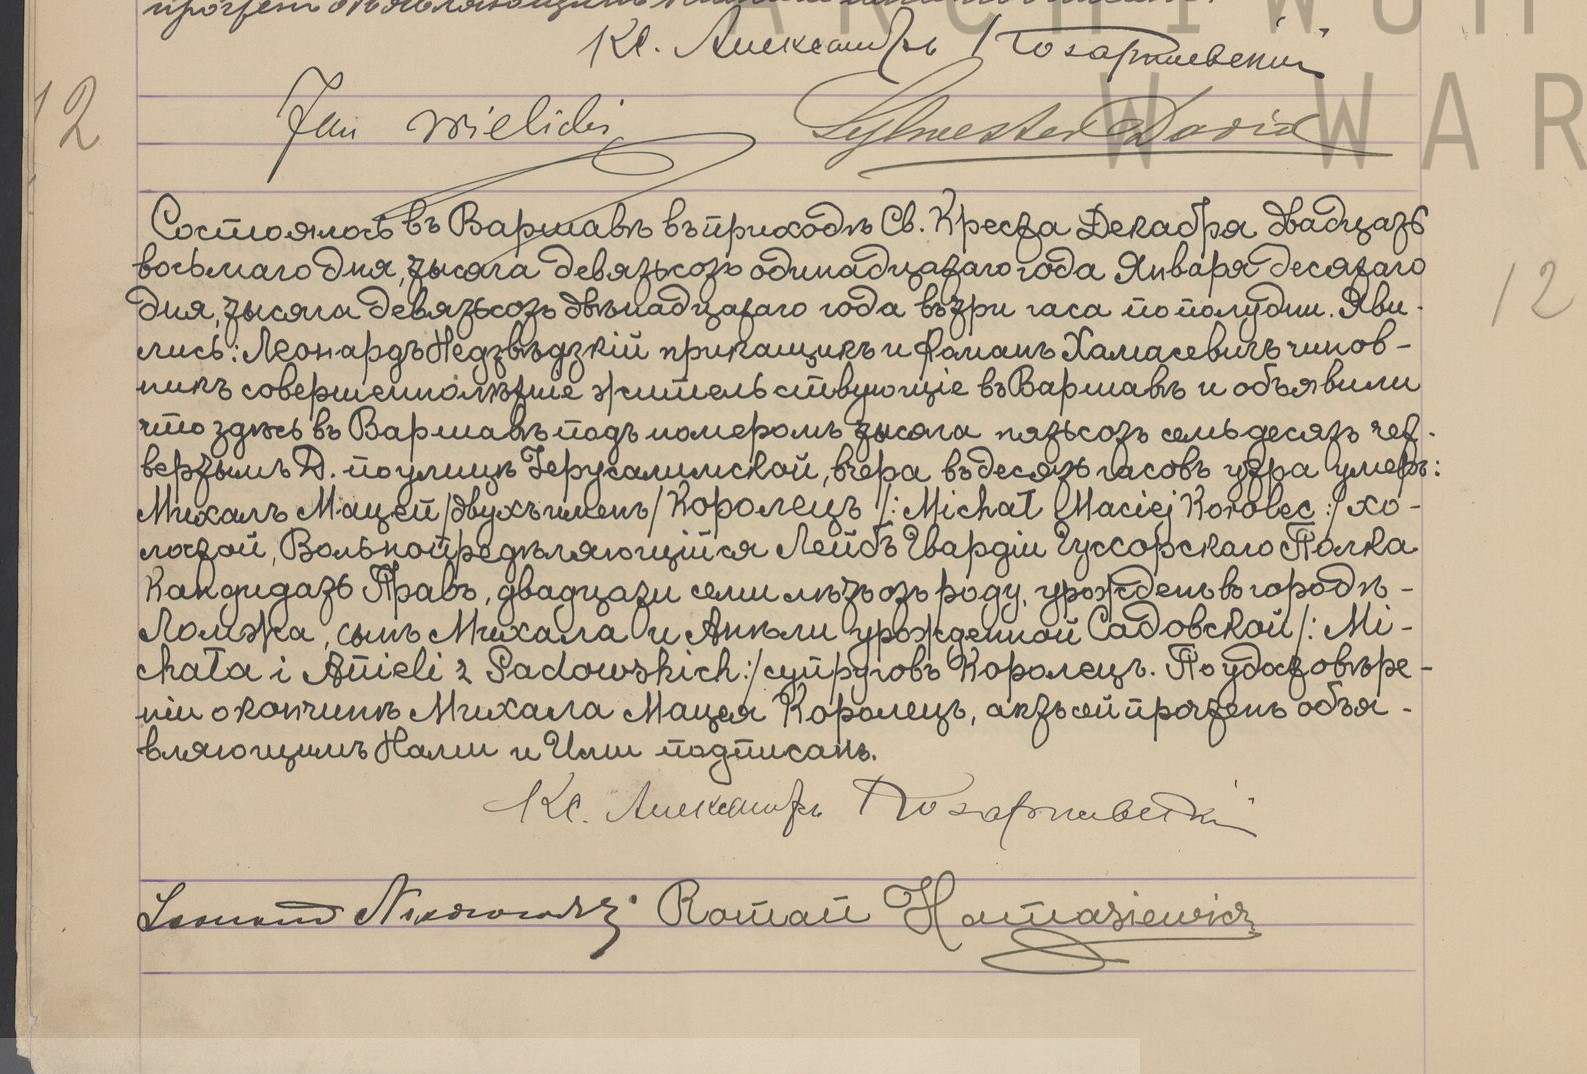 Кс. Александръ
12
Jan Sylwester
Состоялось въ Варшавѣ въ приходѣ Св. Креста Декабря двадцать
восьмаго дня, тысяча девятьсотъ одинадцатаго года Января десятаго
дня, тысяча девятьсотъ двѣнадцатаго года въ три часа по полудни. Яви-
лись: Леонардъ Недзвѣдзкій прикащикъ и Романъ Хамасевичъ чинов-
никъ совершеннолѣтніе жительствующіе въ Варшавѣ и объявили
что здѣсь въ Варшавѣ подъ номеромъ тысяча пятьсотъ семьдесятъ чет-
вертымъ Д. по улицѣ Іерусалимской, вчера въ десять часовъ утра умеръ:
Михалъ Мацей /двухъ именъ/ Королецъ /: Michał Maciej Korolec :/ хо-
лостой, Вольноопредѣляющійся Лейбъ Гвардіи Гуссорскаго Полка
Кандидатъ Правъ, двадцати семи лѣтъ отъ роду, урожденъ въ городѣ -
Ломжа, сынъ Михала и Анѣли урожденной Садовской /: Mi-
chała i Anieli z Sadowskich :/ супруговъ Королецъ. По удостовѣре-
ніи о кончинѣ Михала Мацея Королецъ, актъ сей прочтенъ объя-
вляющимъ Нами и Ими подписанъ.
12
Кс. Александръ
Roman Hamasiewicz
ARCHIWUM
W WAR